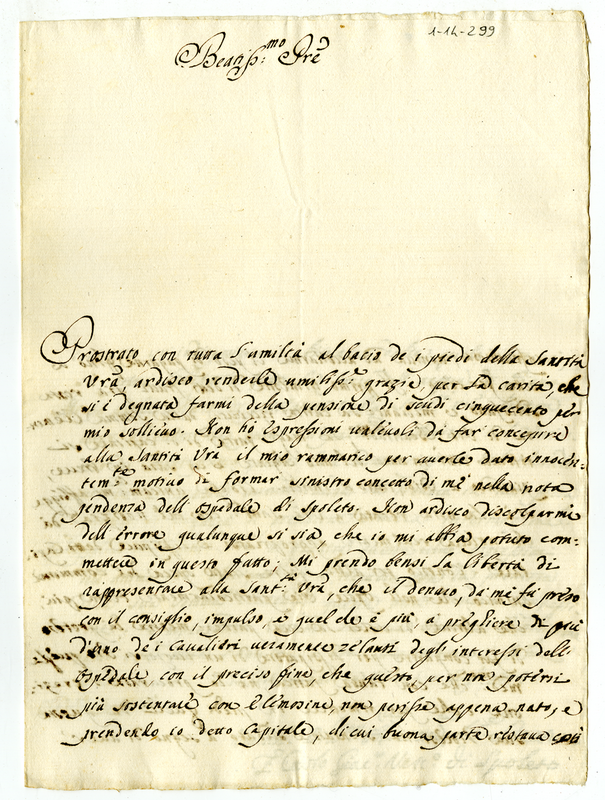 1-14-299
Beatiss:mo Pre
Prostrato con tutta l'umiltà al bacio de i piedi della Santità
Vra, ardisco renderle umiliss:e grazie, per la carità, che
si è degnata farmi della pensione di scudi cinquecento per
mio sollievo. Non hò espressioni valevoli da far concepire
alla Santità Vra il mio rammarico per averle dato innocen-
tem:te motivo di formar sinistro concetto di mè nella nota
pendenza dell'Ospedale di Spoleto. Non ardisco discolparmi
dell'Errore qualunque si sia, che io mi abbia potuto com-
mettere in questo fatto; Mi prendo bensì la libertà di
rappresentare alla Sant:tà Vra, che il denaro, da mè fù preso
con il consiglio, impulso, e quel che è più, a preghiere di più
d'uno de i Cavalieri veramente zelanti degli interessi dell'
Ospedale, con il preciso fine, che questo, per non potersi
più sostentare con Elemosine, non perisse appena nato, e
prendendo io detto Capitale, di cui buona parte restava così